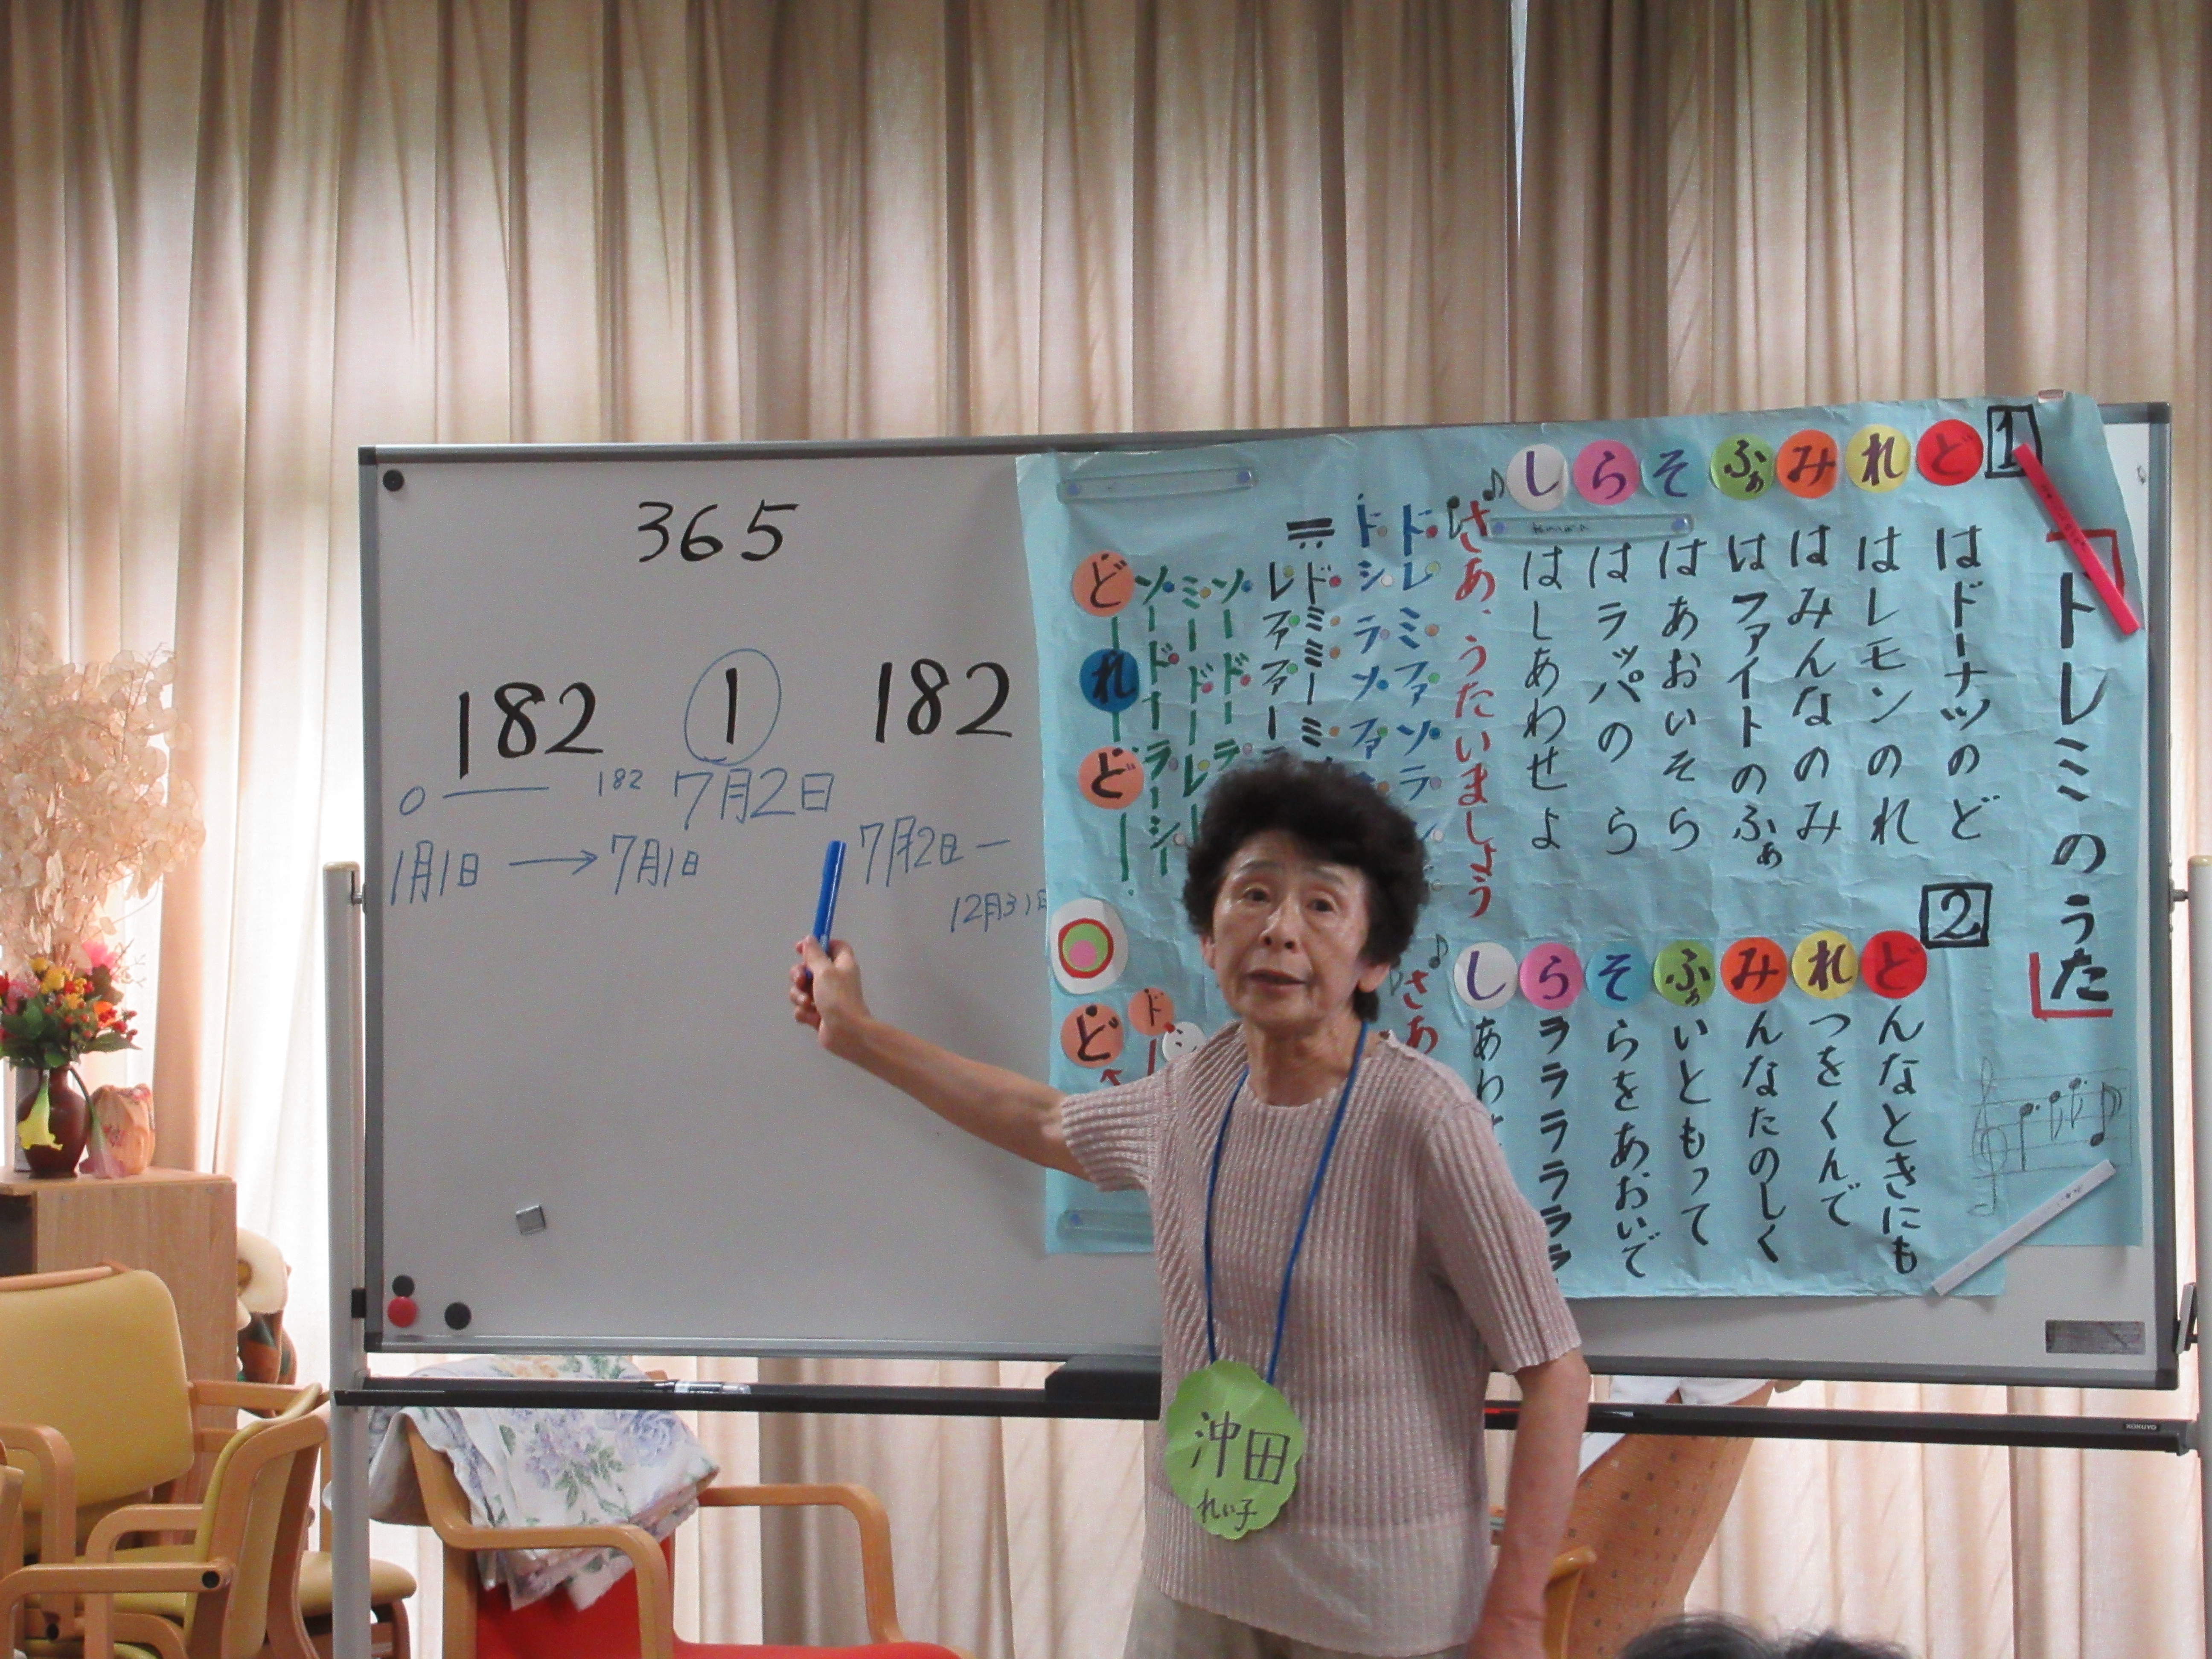 365
182
1
182
0
182
7月2日
1月1日 → 7月1日
7月2日 ―
12月31日
「ドレミのうた」
1
どはドーナツのど
れはレモンのれ
みはみんなのみ
ふぁはファイトのふぁ
そはあおいそら
らはラッパのら
しはしあわせよ
さあ、うたいましょう
ドレミファソラ
ドシラソファ
ドミミーミ
レファファー
ソードーラ
ミードーレ
ソードーラーシー
どーれーどー
2
どんなときにも
れつをくんで
みんなたのしく
ふぁいともって
そらをあおいで
らララララララ
しあわ
さあ
ど
ド
沖田
れい子
KOKUYO